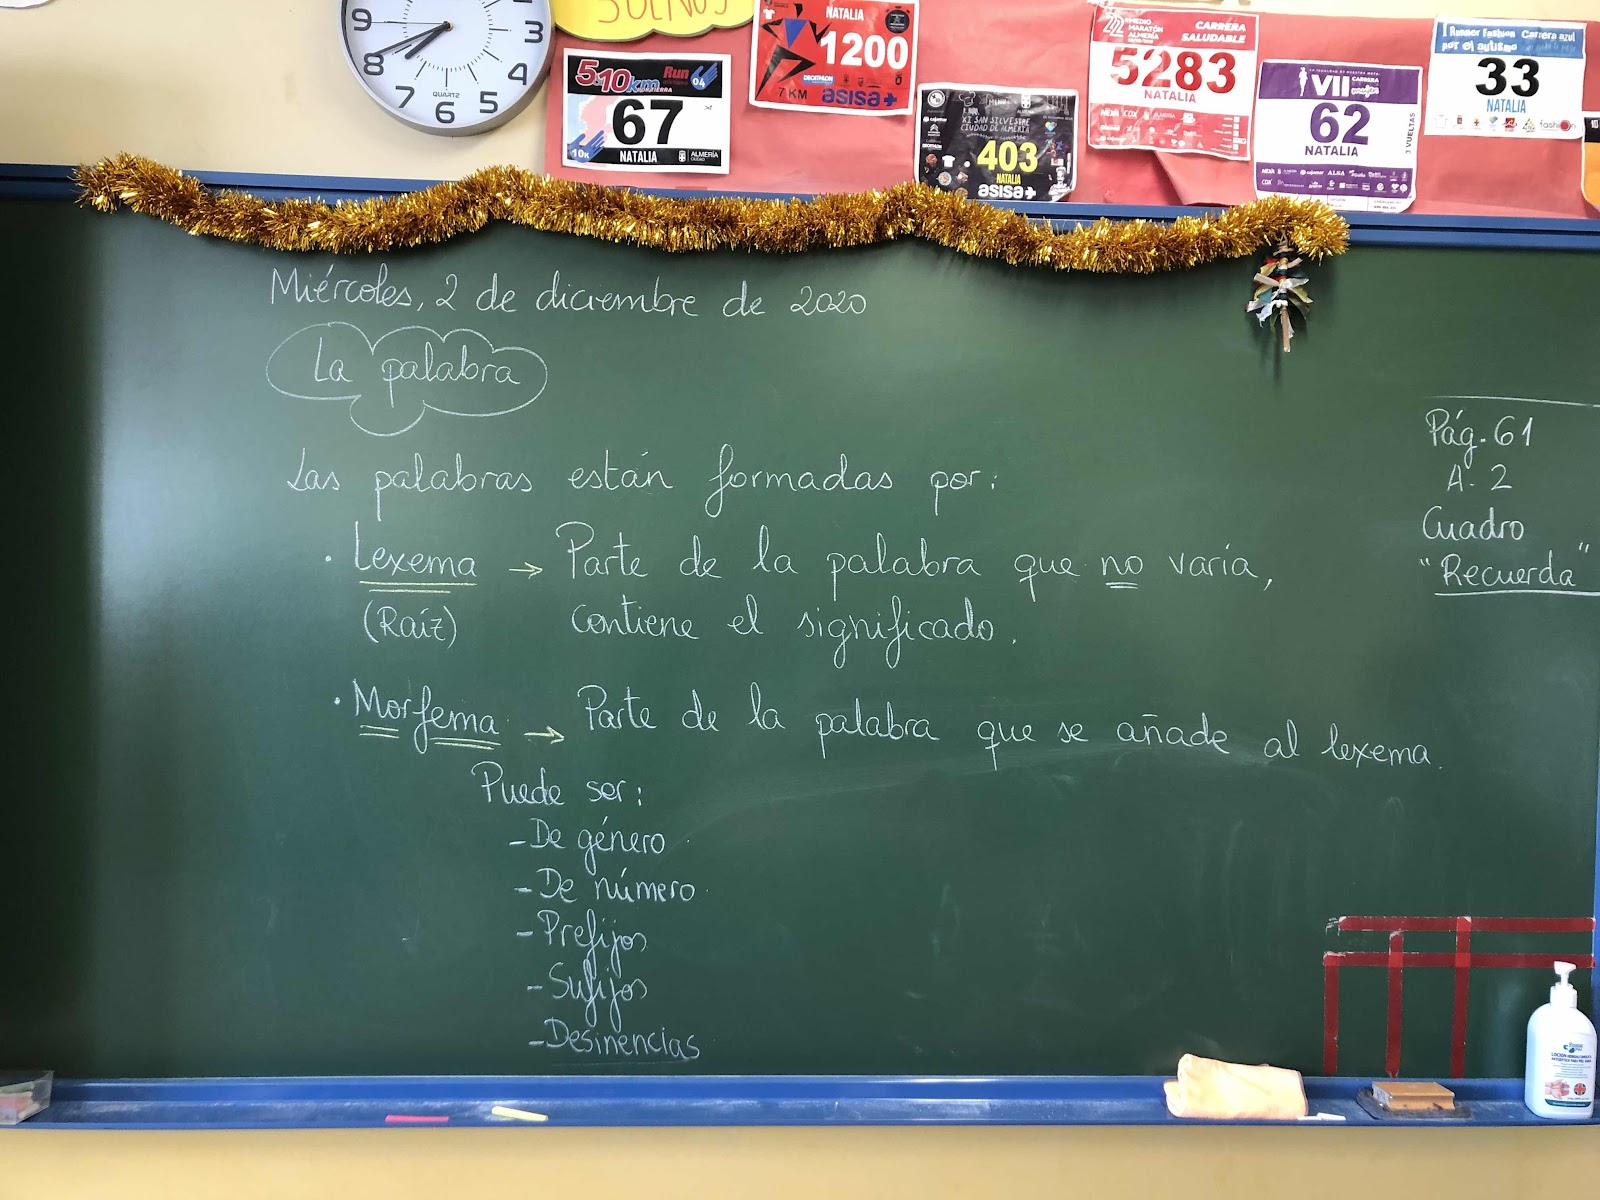 3
4
5
6
7
8
9
QUARTZ
5 10 km Run 04
67
NATALIA
10K
ALMERÍA
NATALIA
1200
7 KM
DECATHLON
asisa+
XI SAN SILVESTRE
CIUDAD DE ALMERÍA
403
NATALIA
asisa+
22 MEDIO MARATÓN ALMERÍA
CARRERA SALUDABLE
5283
NATALIA
VII CARRERA
62
NATALIA
3 VUELTAS
I Runner Fashion Carrera azul
por el autismo
33
NATALIA
fashion
Miércoles, 2 de diciembre de 2020
La palabra
Las palabras están formadas por:
· Lexema → Parte de la palabra que no varía,
(Raíz) contiene el significado.
· Morfema → Parte de la palabra que se añade al lexema.
Puede ser:
- De género
- De número
- Prefijos
- Sufijos
- Desinencias
Pág. 61
A. 2
Cuadro
"Recuerda"